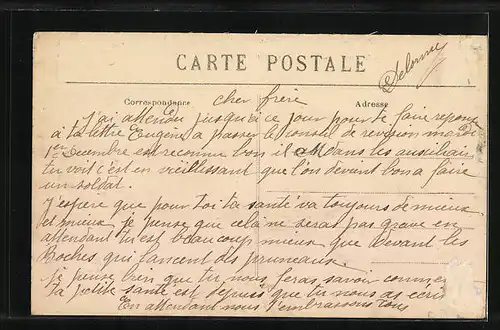 CARTE POSTALE
Correspondance
Adresse
cher frère
J'ai attendu jusqu'à ce jour pour te faire reponse
à ta lettre Eugène a passer le conseil de revision mardi
1er Decembre est reconnu bon il est dans les auxiliair
tu voit c'est en vieillissant que l'on devient bon a faire
un soldat.
J'espère que pour toi ta santé va toujours de mieux
et mieux je pense que cela ne seras pas grave en
attendant tu est beaucoup mieux que devant les
Boches qui lancent des pruneaux.
je pense bien que tu nous feras savoir comment
ta petite santé est depuis que tu nous as écris
En attendant nous t'embrassons tous